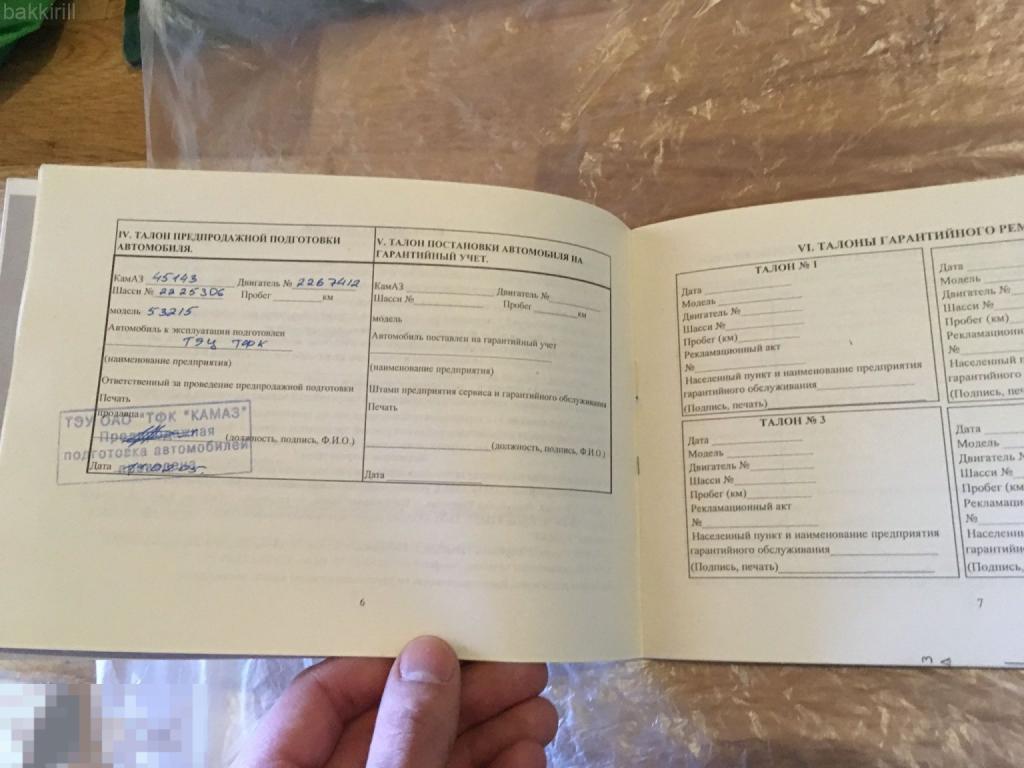 bakkirill
IV. ТАЛОН ПРЕДПРОДАЖНОЙ ПОДГОТОВКИ
АВТОМОБИЛЯ.
КамАЗ 45143 Двигатель № 2267412
Шасси № 2225306 Пробег км
модель 53215
Автомобиль к эксплуатации подготовлен
ТЭЦ ТФК
(наименование предприятия)
Ответственный за проведение предпродажной подготовки
Печать
продавца
ТЭУ ОАО "ТФК "КАМАЗ"
Предпродажная
подготовка автомобилей
(должность, подпись, Ф.И.О.)
Дата
6
V. ТАЛОН ПОСТАНОВКИ АВТОМОБИЛЯ НА
ГАРАНТИЙНЫЙ УЧЕТ.
КамАЗ Двигатель №
Шасси № Пробег км
модель
Автомобиль поставлен на гарантийный учет
(наименование предприятия)
Штамп предприятия сервиса и гарантийного обслуживания
Печать
(должность, подпись, Ф.И.О.)
Дата
VI. ТАЛОНЫ ГАРАНТИЙНОГО РЕМ
ТАЛОН № 1
Дата
Модель
Двигатель №
Шасси №
Пробег (км)
Рекламационный акт
№
Населенный пункт и наименование предприятия
гарантийного обслуживания
(Подпись, печать)
Дата
Модель
Двигатель №
Шасси №
Пробег (км)
Рекламационный
№
Населенный
гарантийного
(Подпись, печать)
ТАЛОН № 3
Дата
Модель
Двигатель №
Шасси №
Пробег (км)
Рекламационный акт
№
Населенный пункт и наименование предприятия
гарантийного обслуживания
(Подпись, печать)
Дата
Модель
Двигатель №
Шасси №
Пробег (км)
Рекламаци
№
Населенн
гарантийн
(Подпись,
7